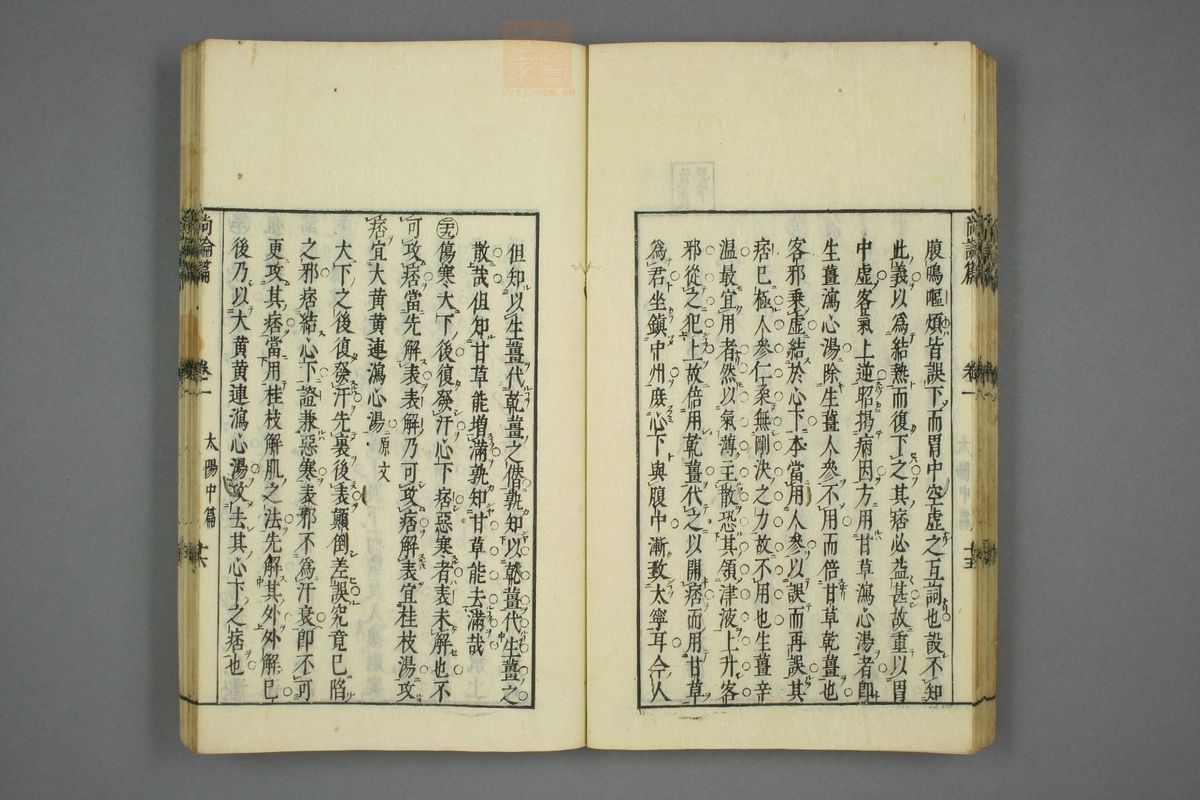 尚論篇 卷一
腹鳴嘔煩皆誤下而胃中空虛之互詞也設不知
此義以爲結熱而復下之其痞必益甚故重以胃
中虛客氣上逆昭揭病因方用甘草瀉心湯者卽
生薑瀉心湯除生薑人參不用而倍甘草乾薑也
客邪乘虛結於心下本當用人參以誤而再誤其
痞巳極人參仁柔無剛決之力故不用也生薑辛
温最宜用者然以氣薄主散恐其領津液上升客
邪從之犯上故倍用乾薑代之以開痞而用甘草
爲君坐鎮中州庶心下與腹中漸致太寧耳今人
但知以生薑代乾薑之僭孰知以乾薑代生薑之
散哉但知甘草能增滿孰知甘草能去滿哉
傷寒大下後復發汗心下痞惡寒者表未解也不
可攻痞當先解表表解乃可攻痞解表宜桂枝湯攻
痞宜大黃黃連瀉心湯 原文
大下之後復發汗先裏後表顛倒差誤究竟巳陷
之邪痞結心下證兼惡寒表邪不爲汗衰卽不可
更攻其痞當用桂枝解肌之法先解其外外解巳
後乃以大黃黃連瀉心湯攻去其心下之痞也
尚論篇 卷一 太陽中篇
zysj.com.cn